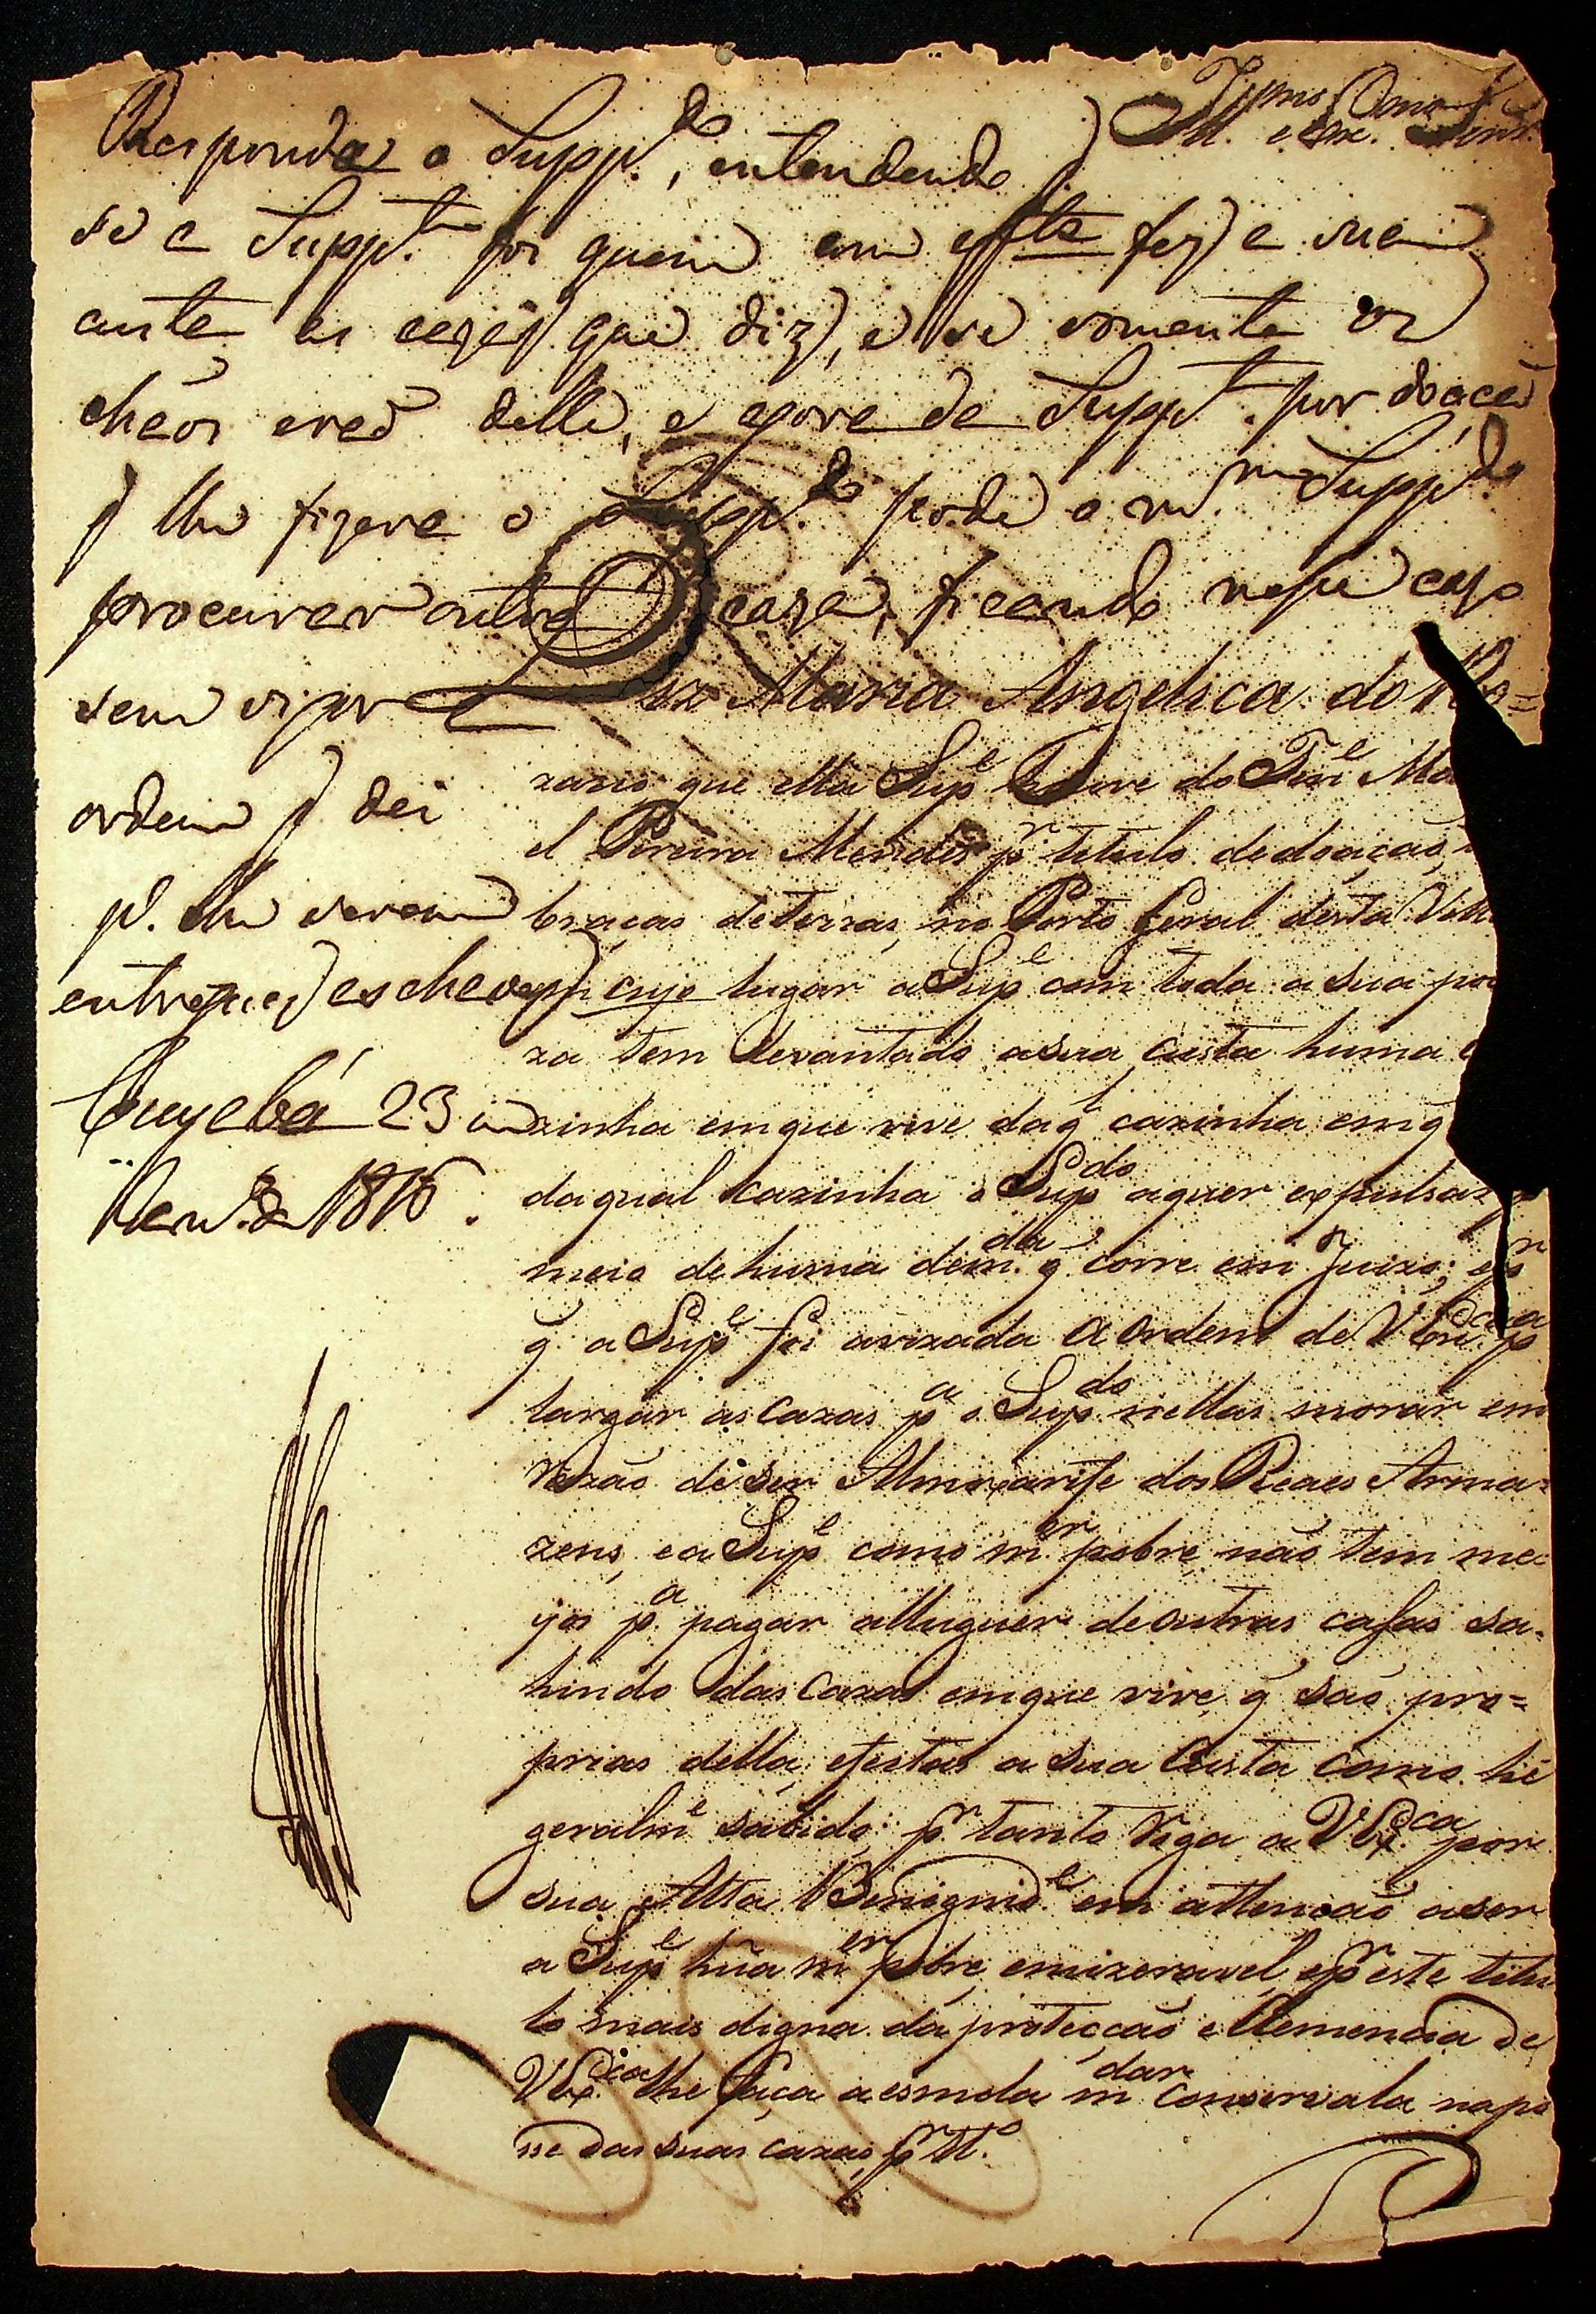 Illmo e Exmo Senr.
Responda o Supp.do, entendendo
se a Supp.te foi quem em effto fez e
ante as cazas que diz, e se somente os
cháos eraõ delle, e agora da Supp.te por doaçaõ
q̃ lhe fizera o Supp.do pode o m.mo Supp.do
procurar outra caza, ficando nesse cazo
sem vigor a
ordem q̃ dei
p.a lhe serem
entregues as chaves
Cuyabá 23 de
de 1816.
Diz Maria Angelica do Ro=
zario que ella Sup.e houve do Ten.e Ma
el Pereira Mendes p.r titulo de doaçaõ,
braças de terras, no Porto Geral desta Vill
em cujo lugar a Sup.e com toda a sua po
za tem levantado a sua custa huma
zinha em que vive da q.l cazinha em q̃
da qual cazinha o Sup.do a quer expulsar p
meio de huma dem.da q̃ corre em Juizo; e p.r
q̃ a Sup.e foi avizada a ordem de V Ex.ca p.a
largar as cazas p.a o Sup.do nellas morar em
rezaõ de ser Almoxarife dos Reaes Arma=
zens, e a Sup.e como m.er pobre naõ tem me=
yos p.a pagar alluguer de outras casas sa=
hindo das cazas em que vive, q̃ saõ pro=
prias della, e feitas a sua custa como hé
geralm.e sabido; p.r tanto roga a V Ex.ca por
sua Alta Benignid.e em attençaõ a ser
a Sup.e hũa m.er pobre, e mizeravel, e p.r este titu
lo mais digna da protecçaõ e Clemencia de
V Ex.cia lhe faça a esmola m.dar conservala na po
sse das suas cazas, p.r tt.o